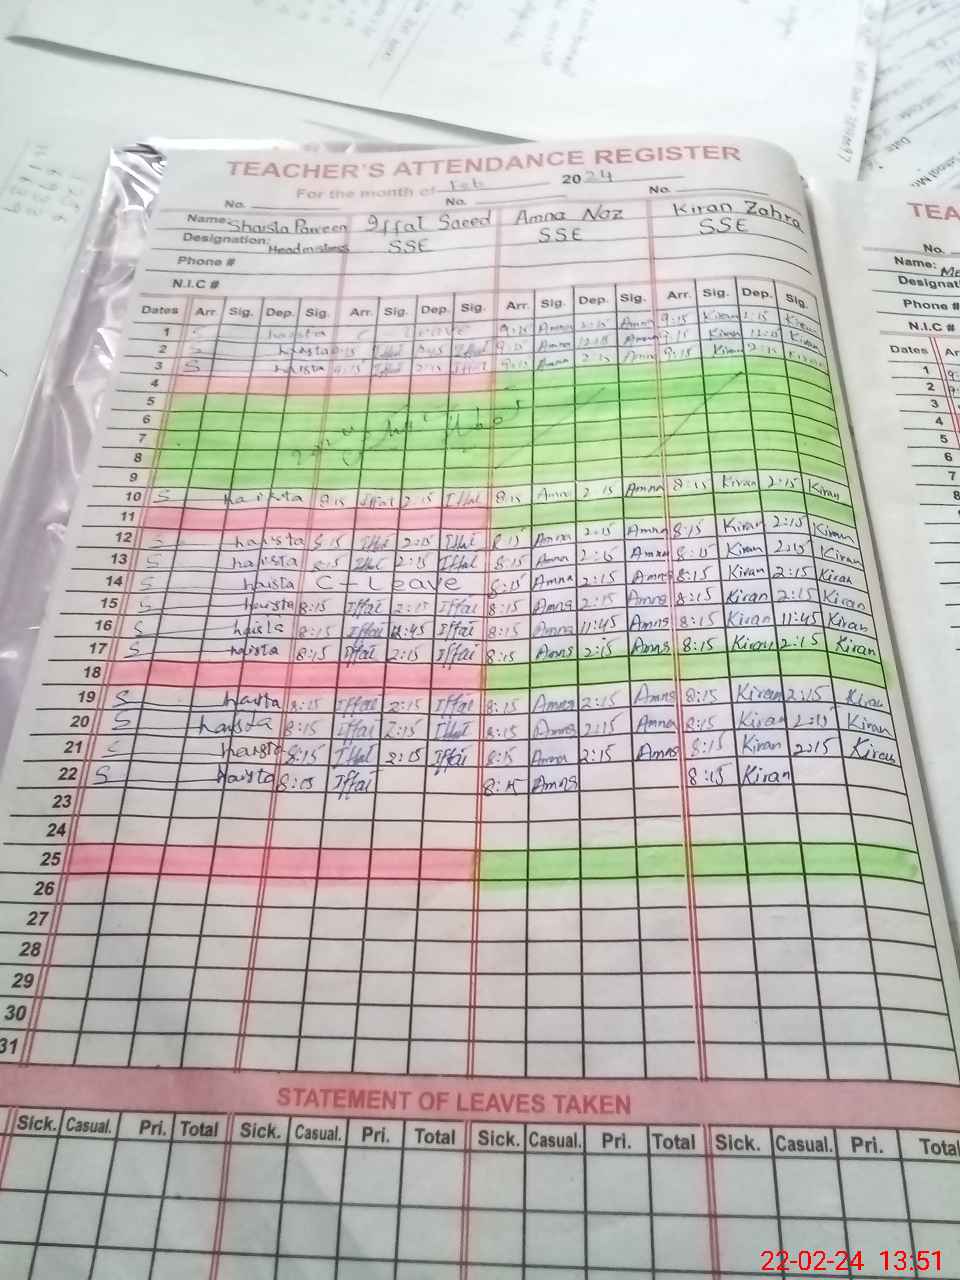 TEACHER'S ATTENDANCE REGISTER
For the month of Feb 2024
No. No. No.
Name: Shaista Parveen Iffat Saeed Amna Naz Kiran Zahra
Designation: Headmistress SSE SSE SSE
Phone #
N.I.C #
Dates Arr. Sig. Dep. Sig. Arr. Sig. Dep. Sig. Arr. Sig. Dep. Sig. Arr. Sig. Dep. Sig.
1 S haista C Leave 9:15 Amna 2:15 Amna 9:15 Kiran 2:15 Kiran
2 S haista Iffat Iffat 9:15 Amna 12:15 Amna 9:15 Kiran 12:15 Kiran
3 S haista 9:15 Iffat 2:15 Iffat 9:15 Amna 2:15 Amna 9:15 Kiran 2:15 Kiran
4
5
6
7
8
9
10 S haista 8:15 Iffat 2:15 Iffat 8:15 Amna 2:15 Amna 8:15 Kiran 2:15 Kiran
11
12 S haista 8:15 Iffat 2:15 Iffat 8:15 Amna 2:15 Amna 8:15 Kiran 2:15 Kiran
13 S haista 8:15 Iffat 2:15 Iffat 8:15 Amna 2:15 Amna 8:15 Kiran 2:15 Kiran
14 S haista C - Leave 8:15 Amna 2:15 Amna 8:15 Kiran 2:15 Kiran
15 S haista 8:15 Iffat 2:15 Iffat 8:15 Amna 2:15 Amna 8:15 Kiran 2:15 Kiran
16 S haista 8:15 Iffat 11:45 Iffat 8:15 Amna 11:45 Amna 8:15 Kiran 11:45 Kiran
17 S haista 8:15 Iffat 2:15 Iffat 8:15 Amna 2:15 Amna 8:15 Kiran 2:15 Kiran
18
19 S haista 8:15 Iffat 2:15 Iffat 8:15 Amna 2:15 Amna 8:15 Kiran 2:15 Kiran
20 S haista 8:15 Iffat 2:15 Iffat 8:15 Amna 2:15 Amna 8:15 Kiran 2:15 Kiran
21 S haista 8:15 Iffat 2:15 Iffat 8:15 Amna 2:15 Amna 8:15 Kiran 2:15 Kiran
22 S haista 8:15 Iffat 8:15 Amna 8:15 Kiran
23
24
25
26
27
28
29
30
31
STATEMENT OF LEAVES TAKEN
Sick. Casual. Pri. Total Sick. Casual. Pri. Total Sick. Casual. Pri. Total Sick. Casual. Pri. Total
TEA
No.
Name:
Designat
Phone #
N.I.C #
Dates Ar
1
2
3
4
5
6
7
8
9
10
11
12
22-02-24 13:51